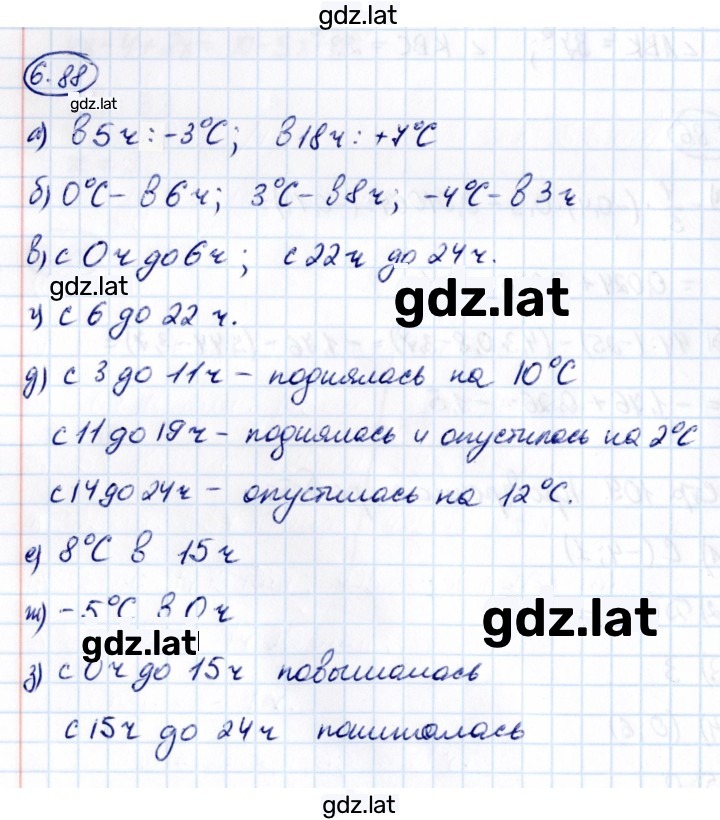 gdz.lat
6.88
gdz.lat
а) в 5 ч: -3°С; в 18 ч: +7°С
б) 0°С - в 6 ч; 3°С - в 8 ч; -4°С - в 3 ч
в) с 0 ч до 6 ч; с 22 ч до 24 ч.
gdz.lat
gdz.lat
г) с 6 до 22 ч.
д) с 3 до 11 ч - поднялась на 10°С
с 11 до 19 ч - поднялась и опустилась на 2°С
с 14 до 24 ч - опустилась на 12°С.
е) 8°С в 15 ч
ж) -5°С в 0 ч
gdz.lat
gdz.lat
з) с 0 ч до 15 ч повышалась
с 15 ч до 24 ч понижалась
gdz.lat